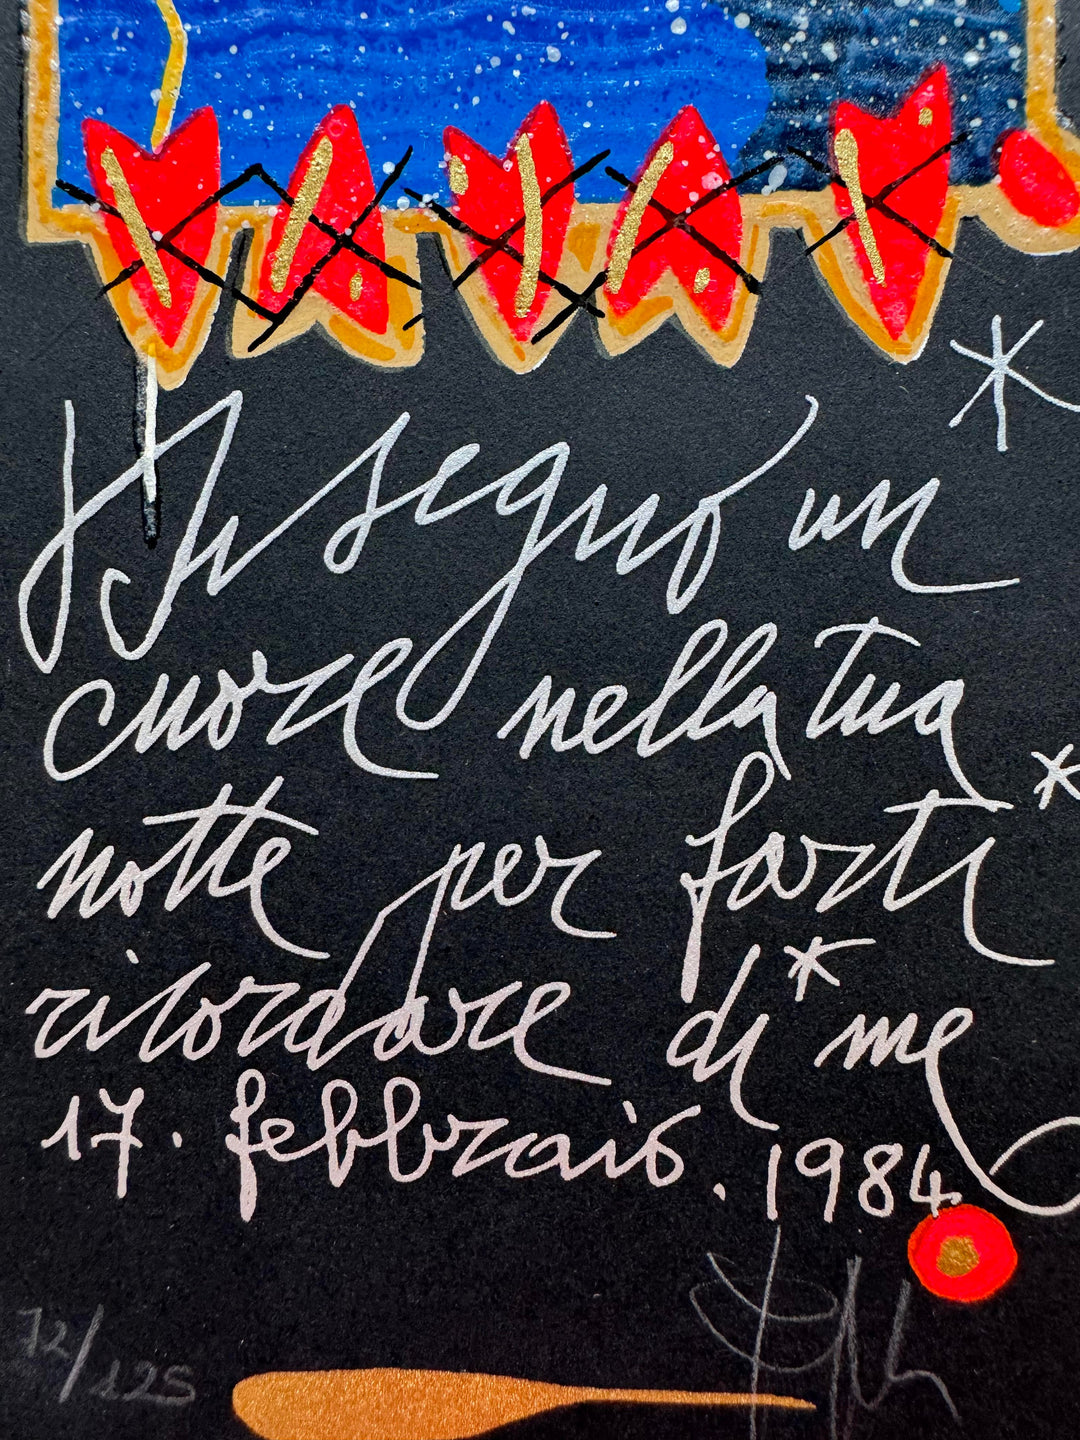 Ti segno un
cuore nella tua
notte per farti
ricordare di me
17. febbraio. 1984
72/125